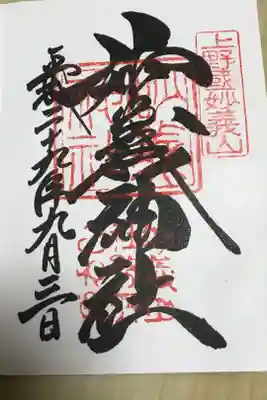 上野國妙義山
妙義神社
平成二十九年九月三日